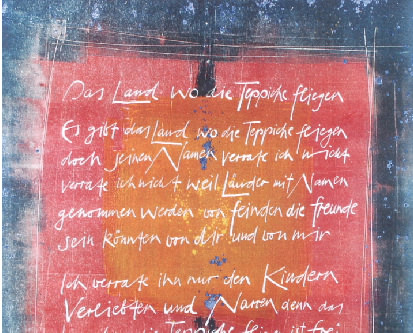 Das Land wo die Teppiche fliegen
Es gibt das Land wo die Teppiche fliegen
doch seinen Namen verrate ich nicht
verrate ich nicht weil Länder mit Namen
genommen werden von feinden die freunde
sein könnten von dir und von mir
Ich verrate ihn nur den Kindern
Verliebten und Narren denn das
Teppiche